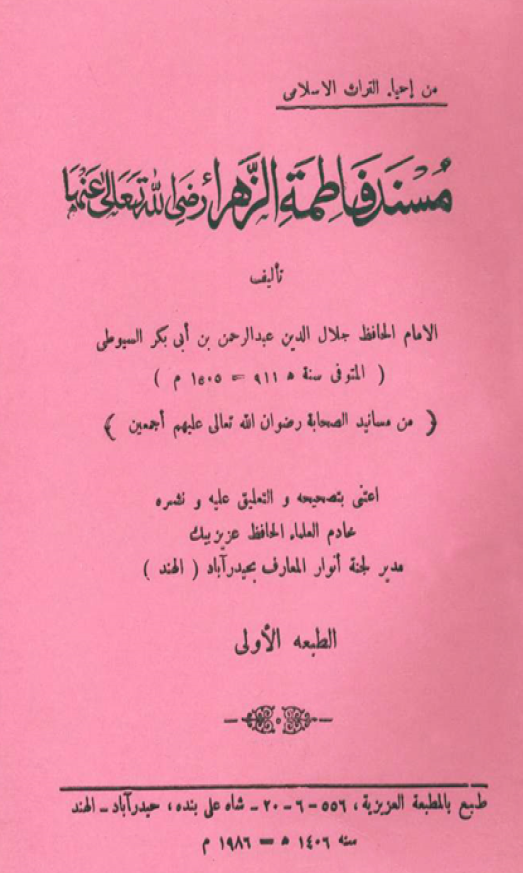 من إحياء التراث الاسلامى
مُسْنَد فَاطِمَةِ الزَّهراءُ رَضِيَ اللهُ تَعَالَى عَنْهَا
تأليف
الامام الحافظ جلال الدين عبدالرحمن بن أبى بكر السيوطى
( المتوفى سنة ه ٩١١ = ١٥٠٥ م )
﴿ من مسانيد الصحابة رضوان الله تعالى عليهم أجمعين ﴾
اعتنى بتصحيحه و التعليق عليه و نشره
خادم العلماء الحافظ عزيز بيك
مدير لجنة أنوار المعارف بحيدرآباد ( الهند )
الطبعه الأولى
طبيع بالمطبعة العزيزية، ٥٥٦ – ٦ – ٢٠ – شاه على بنده، حيدرآباد – الهند
سنه ١٤٠٦ ه = ١٩٨٦ م